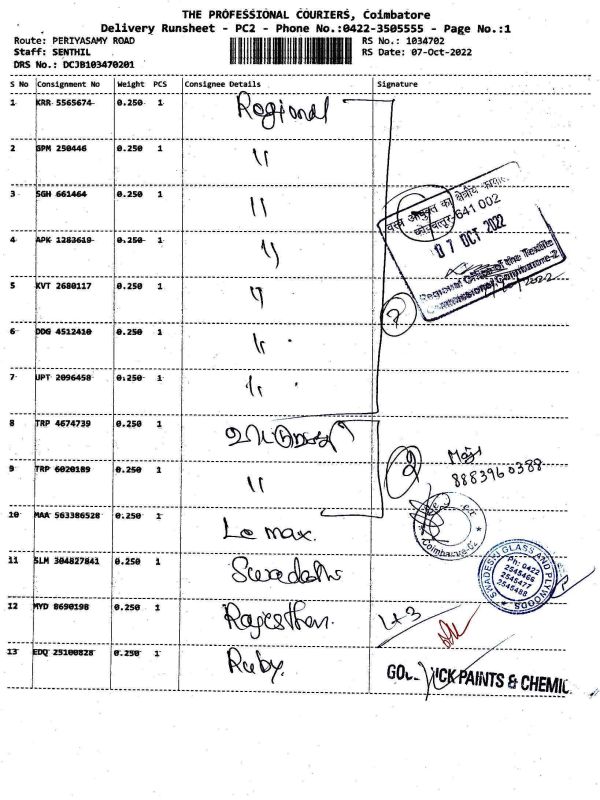 THE PROFESSIONAL COURIERS, Coimbatore
Delivery Runsheet - PC2 - Phone No.:0422-3505555 - Page No.:1
Route: PERIYASAMY ROAD
Staff: SENTHIL
DRS No.: DCJB103470201
RS No.: 1034702
RS Date: 07-Oct-2022
S No Consignment No Weight PCS Consignee Details Signature
1 KRR 5565674 0.250 1 Regional
2 GPM 250446 0.250 1 "
3 SGH 661464 0.250 1 "
4 APK 1283619 0.250 1 "
5 KVT 2680117 0.250 1 "
6 DDG 4512410 0.250 1 "
7 UPT 2096458 0.250 1 "
क्षेत्रीय
641 002
07 OCT 2022
Regional Office of the Textile
Commissioner, Coimbatore-2
7
8 TRP 4674739 0.250 1
9 TRP 6020189 0.250 1 "
2
8883960388
10 MAA 563386528 0.250 1 Lomax.
Coimbatore-02
11 SLM 304827841 0.250 1 Swadeshi
SWADESHI GLASS AND PLYWOODS
Ph: 0422
2545466
2545477
2545488
12 MYD 8690198 0.250 1 Rajesthan.
1+3
13 EDQ 25100828 0.250 1 Ruby.
PAINTS & CHEMIC